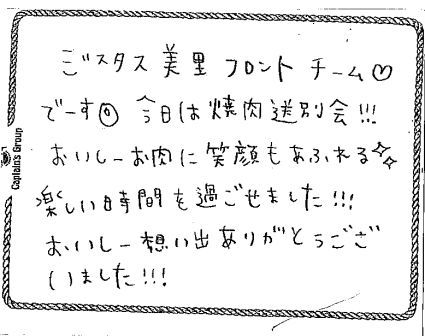 ジスタス美里 フロント チーム♡
でーす◎ 今日は焼肉送別会!!!
おいしーお肉に笑顔もあふれる✧✧
楽しい時間を過ごせました!!!
おいしー想い出ありがとうござ
いました!!!
Captain's Group